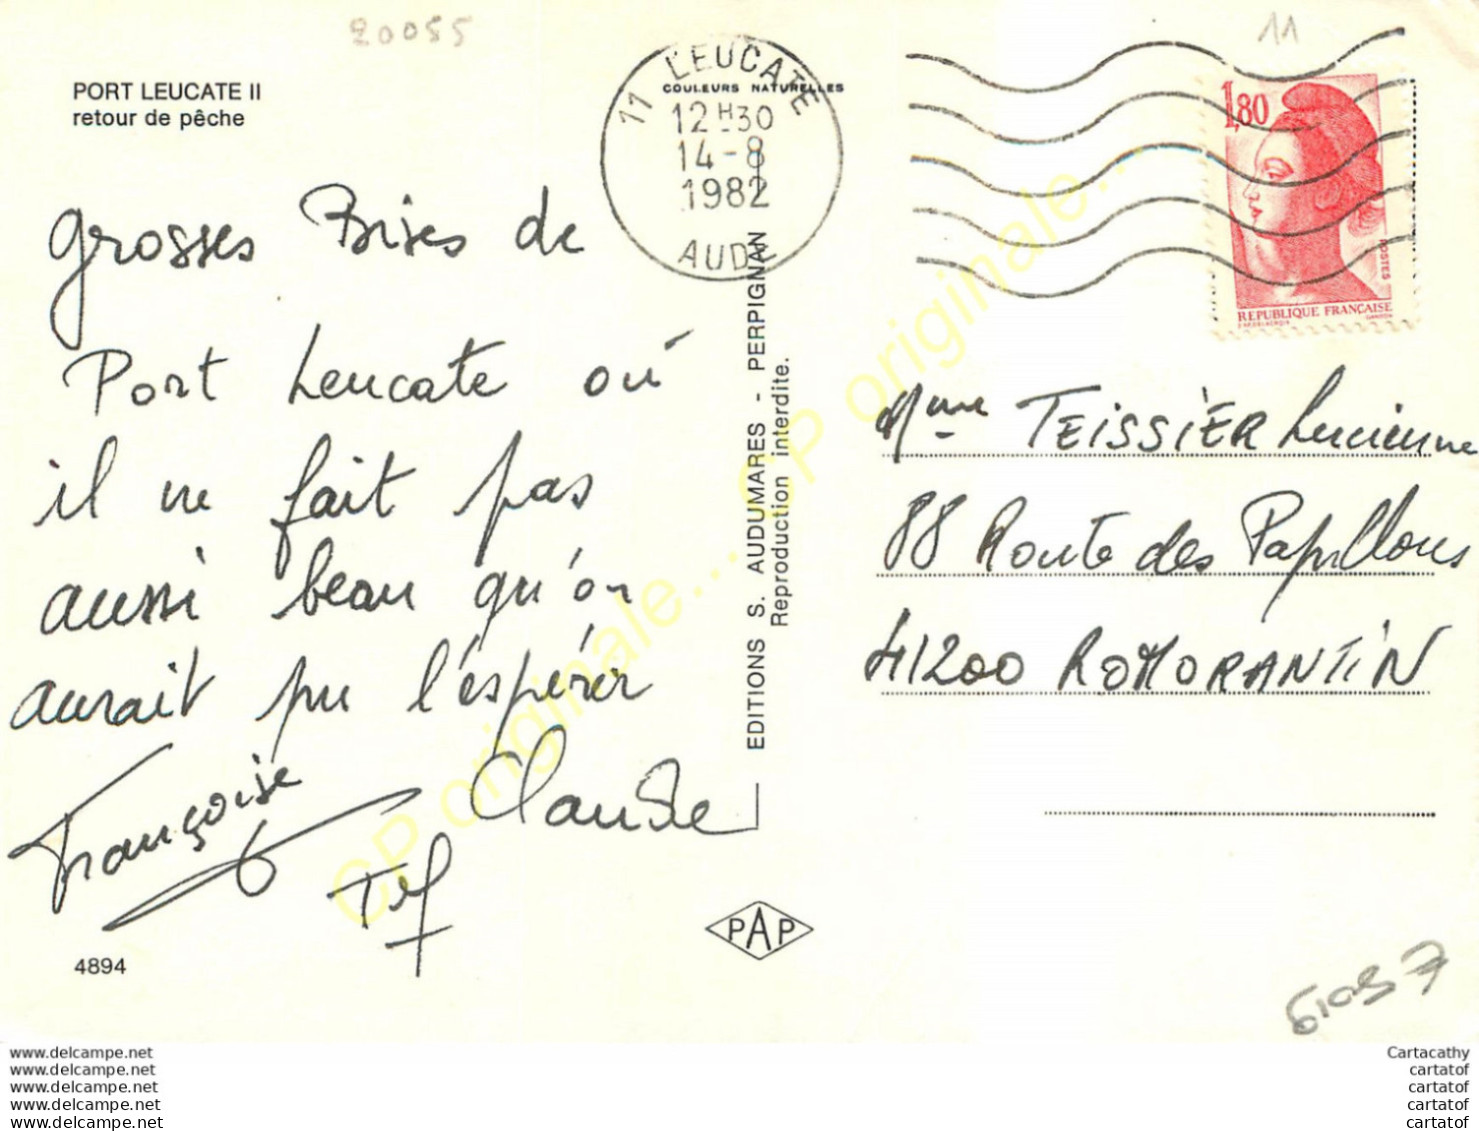 20055
11
PORT LEUCATE II
retour de pêche
11 LEUCATE
COULEURS NATURELLES
12H30
14-8
1982
AUDE
1,80
POSTES
REPUBLIQUE FRANÇAISE
grosses Bises de
Port Leucate où
il ne fait pas
aussi beau qu'on
aurait pu l'espérer
Françoise
Claude
EDITIONS S. AUDUMARES - PERPIGNAN
Reproduction interdite.
CP originale... CP originale... CP originale...
Mme TEISSIER Lucienne
88 Route des Papillons
41200 ROMORANTIN
PAP
4894
www.delcampe.net
www.delcampe.net
www.delcampe.net
www.delcampe.net
www.delcampe.net
Cartacathy
cartatof
cartatof
cartatof
cartatof